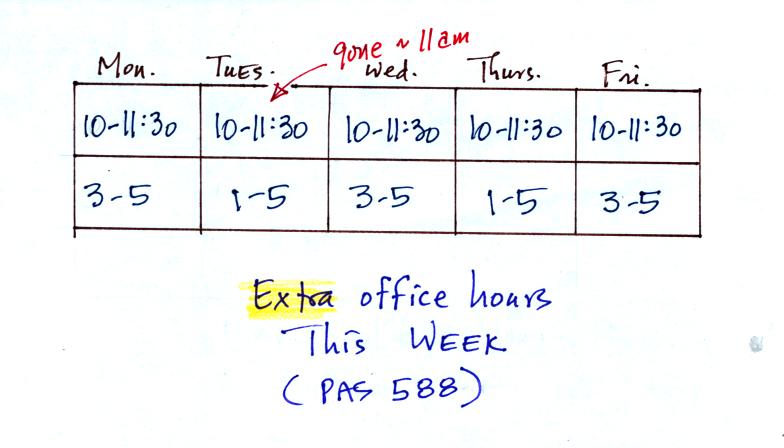 gone ~ 11 am
Mon. Tues. Wed. Thurs. Fri.
10-11:30 10-11:30 10-11:30 10-11:30 10-11:30
3-5 1-5 3-5 1-5 3-5
Extra office hours
This WEEK
(PAS 588)